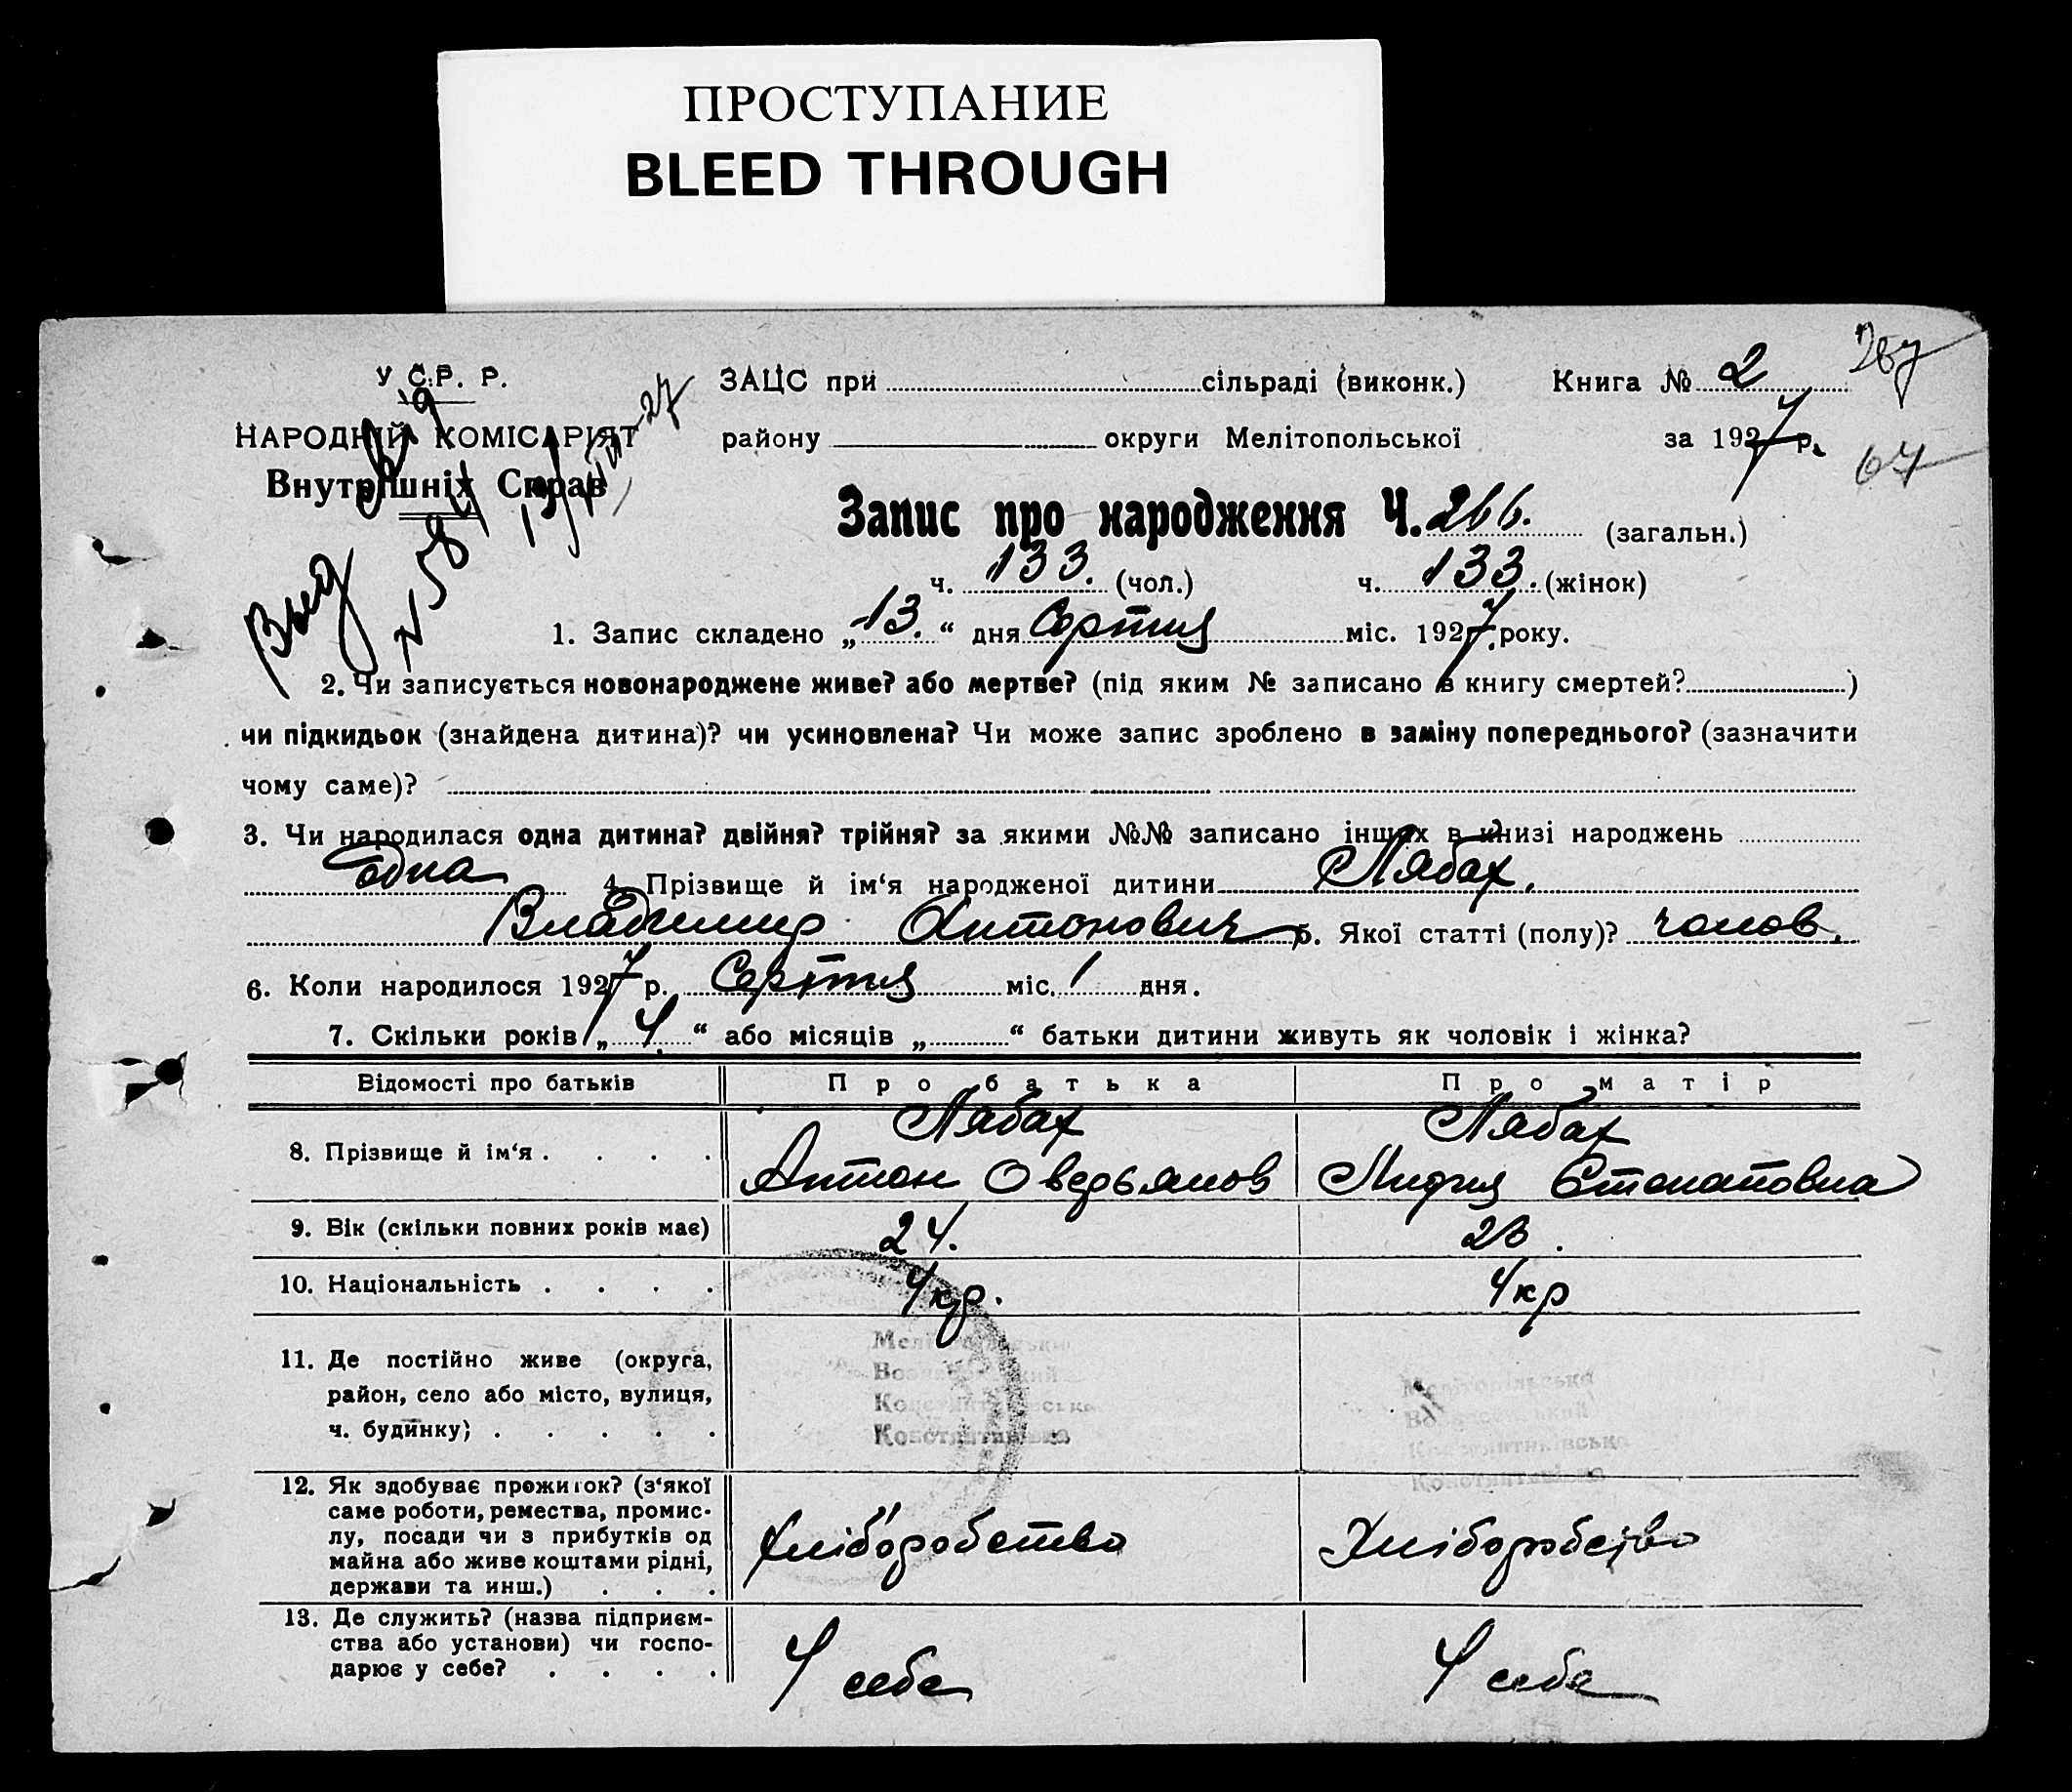 ПРОСТУПАНИЕ
BLEED THROUGH
У С.Р. Р.
НАРОДНІЙ КОМІСАРІЯТ
Внутрішніх Справ
ЗАЦС при сільраді (виконк.) Книга № 2
267
району округи Мелітопольської за 1927 р.
67
Запис про народження Ч. 266. (загальн.)
ч. 133. (чол.) ч. 133. (жінок)
Выд
1. Запис складено „13.“ дня Серпня міс. 1927 року.
2. Чи записується новонароджене живе? або мертве? (під яким № записано в книгу смертей? )
чи підкидьок (знайдена дитина)? чи усиновлена? Чи може запис зроблено в заміну попереднього? (зазначити
чому саме)?
3. Чи народилася одна дитина? двійня? трійня? за якими №№ записано інших в книзі народжень
одна 4. Прізвище й ім‘я народженої дитини Лябах,
Владимир Антонович 5. Якої статті (полу)? чолов.
6. Коли народилося 1927 р. Серпня міс. 1 дня.
7. Скільки років „4.“ або місяців „ “ батьки дитини живуть як чоловік і жінка?
Відомості про батьків Про батька Про матір
8. Прізвище й ім‘я . . . . Лябах Лябах
Антон Оверьянов Лидия Степановна
9. Вік (скільки повних років має) 24. 23.
10. Національність . . . . Укр. Укр
11. Де постійно живе (округа,
район, село або місто, вулиця,
ч. будинку) . . . . . Константинівка
12. Як здобуває прожиток? (з‘якої
саме роботи, ремества, промис-
лу, посади чи з прибутків од
майна або живе коштами рідні,
держави та инш.) . . . Хліборобство Хліборобство
13. Де служить? (назва підприєм-
ства або установи) чи госпо-
дарює у себе? . . . . У себе У себе